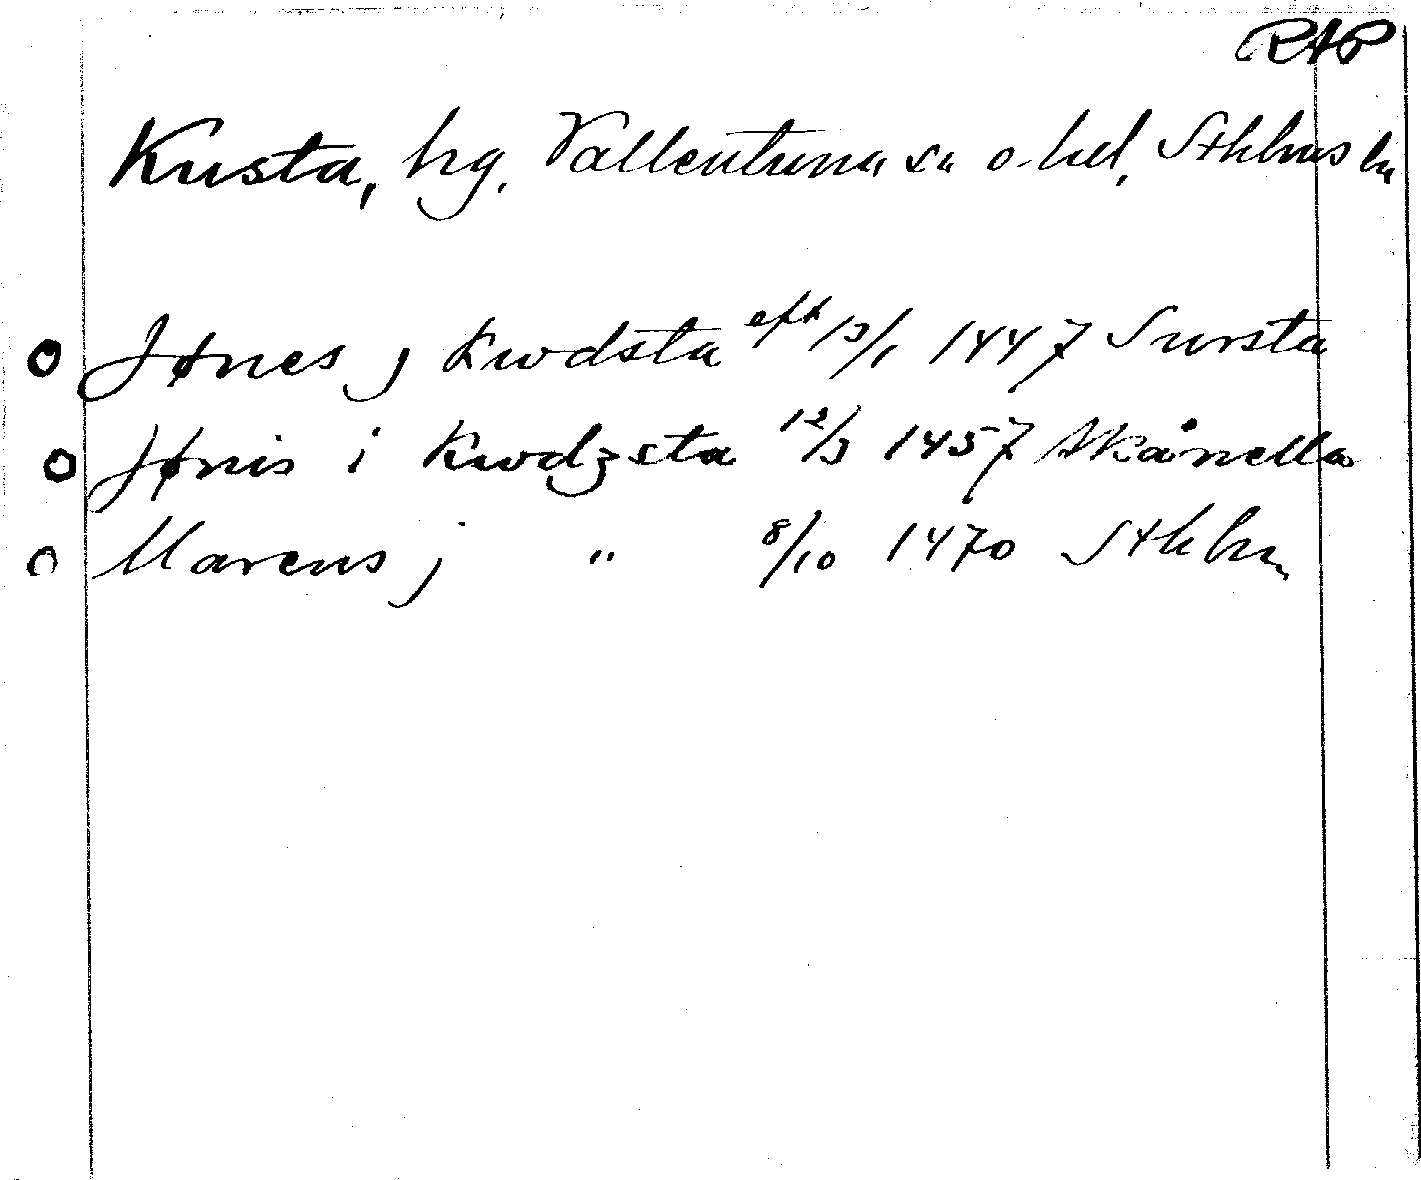 RAP
Kusta, hg, Vallentuna sn o hd, Sthlms ln
Jønes j Kwdsta eft 13/1 1447 Sursta
Jønis i Kwdzsta 12/3 1457 Skånella
Marcus j " 8/10 1470 Sthlm